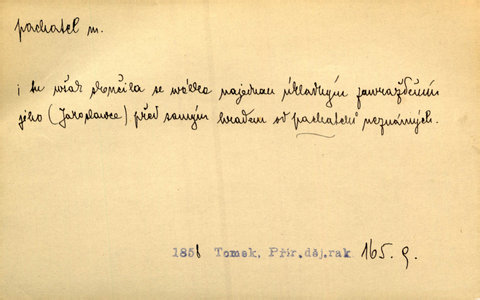 pachatel m.
i tu však skončila se wálka najednau úkladným zawražděním
jeho (Jaroslawce) před samým hradem od pachatelů neznámých.
1858 Tomek, Přír.děj.rak. 165.9.